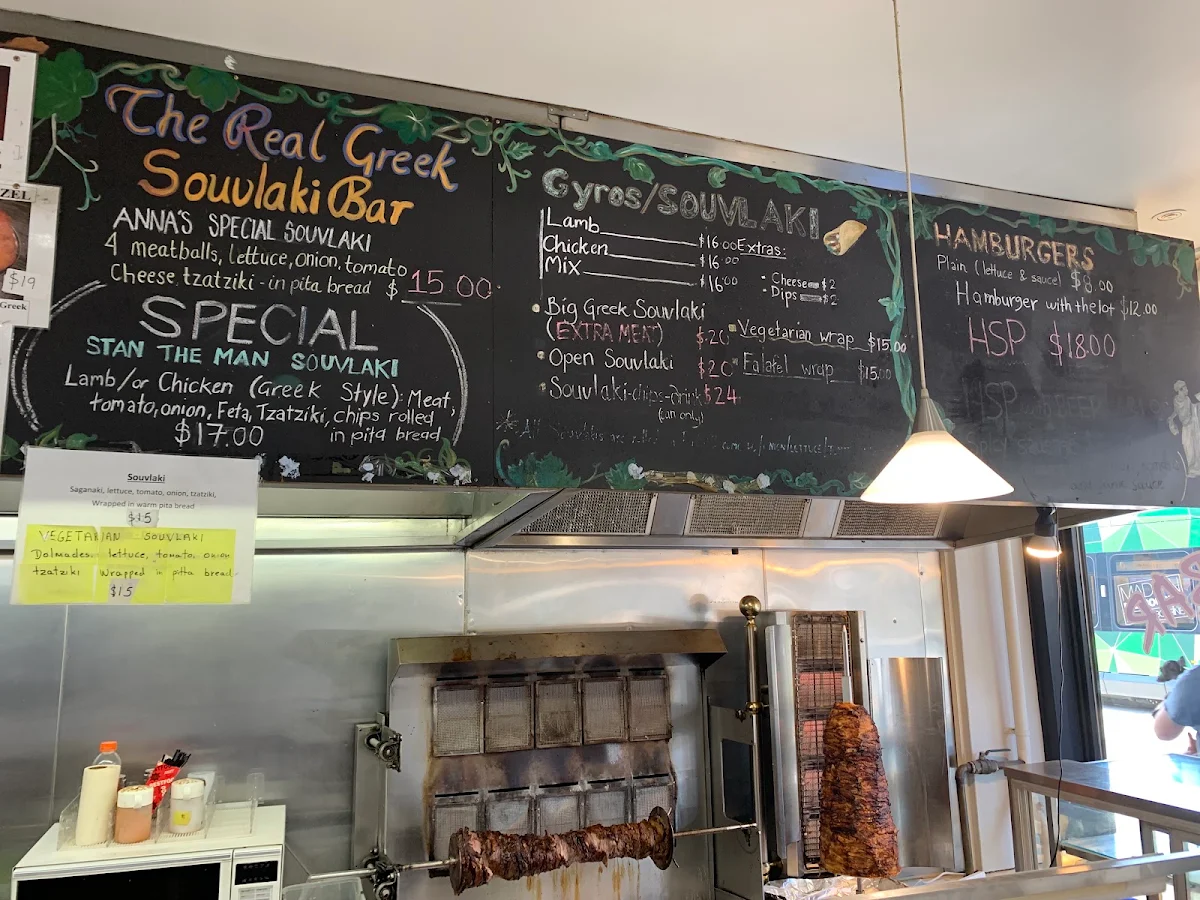 ZEL
$19
Greek
The Real Greek
Souvlaki Bar
ANNA'S SPECIAL SOUVLAKI
4 meatballs, lettuce, onion, tomato
Cheese, tzatziki - in pita bread $ 15.00
SPECIAL
STAN THE MAN SOUVLAKI
Lamb/or Chicken (Greek Style): Meat,
tomato, onion, Feta, Tzatziki, chips rolled
$17.00 in pita bread
Souvlaki
Saganaki, lettuce, tomato, onion, tzatziki,
Wrapped in warm pita bread
$15
VEGETARIAN SOUVLAKI
Dolmades lettuce, tomato, onion
tzatziki Wrapped in pitta bread
$15
Gyros/SOUVLAKI
Lamb $16.00
Chicken $16.00
Mix $16.00
Extras:
Cheese $2
Dips $2
Big Greek Souvlaki
(EXTRA MEAT) $20
Open Souvlaki $20
Souvlaki-chips-drink $24
(can only)
Vegetarian wrap $15.00
Falafel wrap $15.00
HAMBURGERS
Plain (lettuce & sauce) $8.00
Hamburger with the lot $12.00
HSP $18.00
HSP